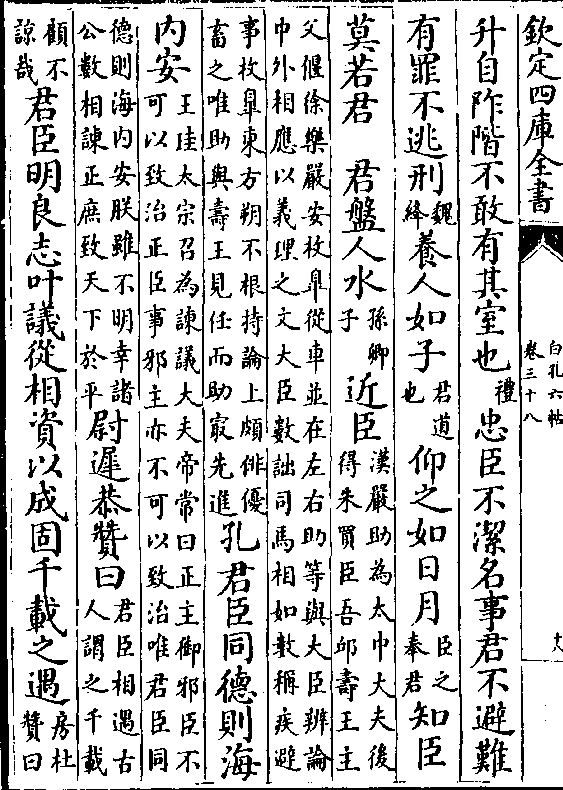 欽定四庫全書
白孔六帖
卷三十八
十八
升自阼階不敢有其室也禮忠臣不潔名事君不避難
有罪不逃刑魏絳養人如子君道也仰之如日月臣之奉君知臣
莫若君 君盤人水孫卿子近臣漢嚴助為太中大夫後得朱買臣吾邱壽王主
父偃徐樂嚴安枚臯從車並在左右助等與大臣辨論中外相應以義理之文大臣數詘司馬相如數稱疾避
事枚臯東方朔不根持論上頗俳優畜之唯助與壽王見任而助㝡先進孔君臣同德則海
内安王珪太宗召為諫議大夫帝常曰正主御邪臣不可以致治正臣事邪主亦不可以致治唯君臣同
德則海内安朕雖不明幸諸公數相諫正庶致天下於平尉遲恭贊曰君臣相遇古人謂之千載
顧不諒哉君臣明良志叶議從相資以成固千載之遇房杜贊曰